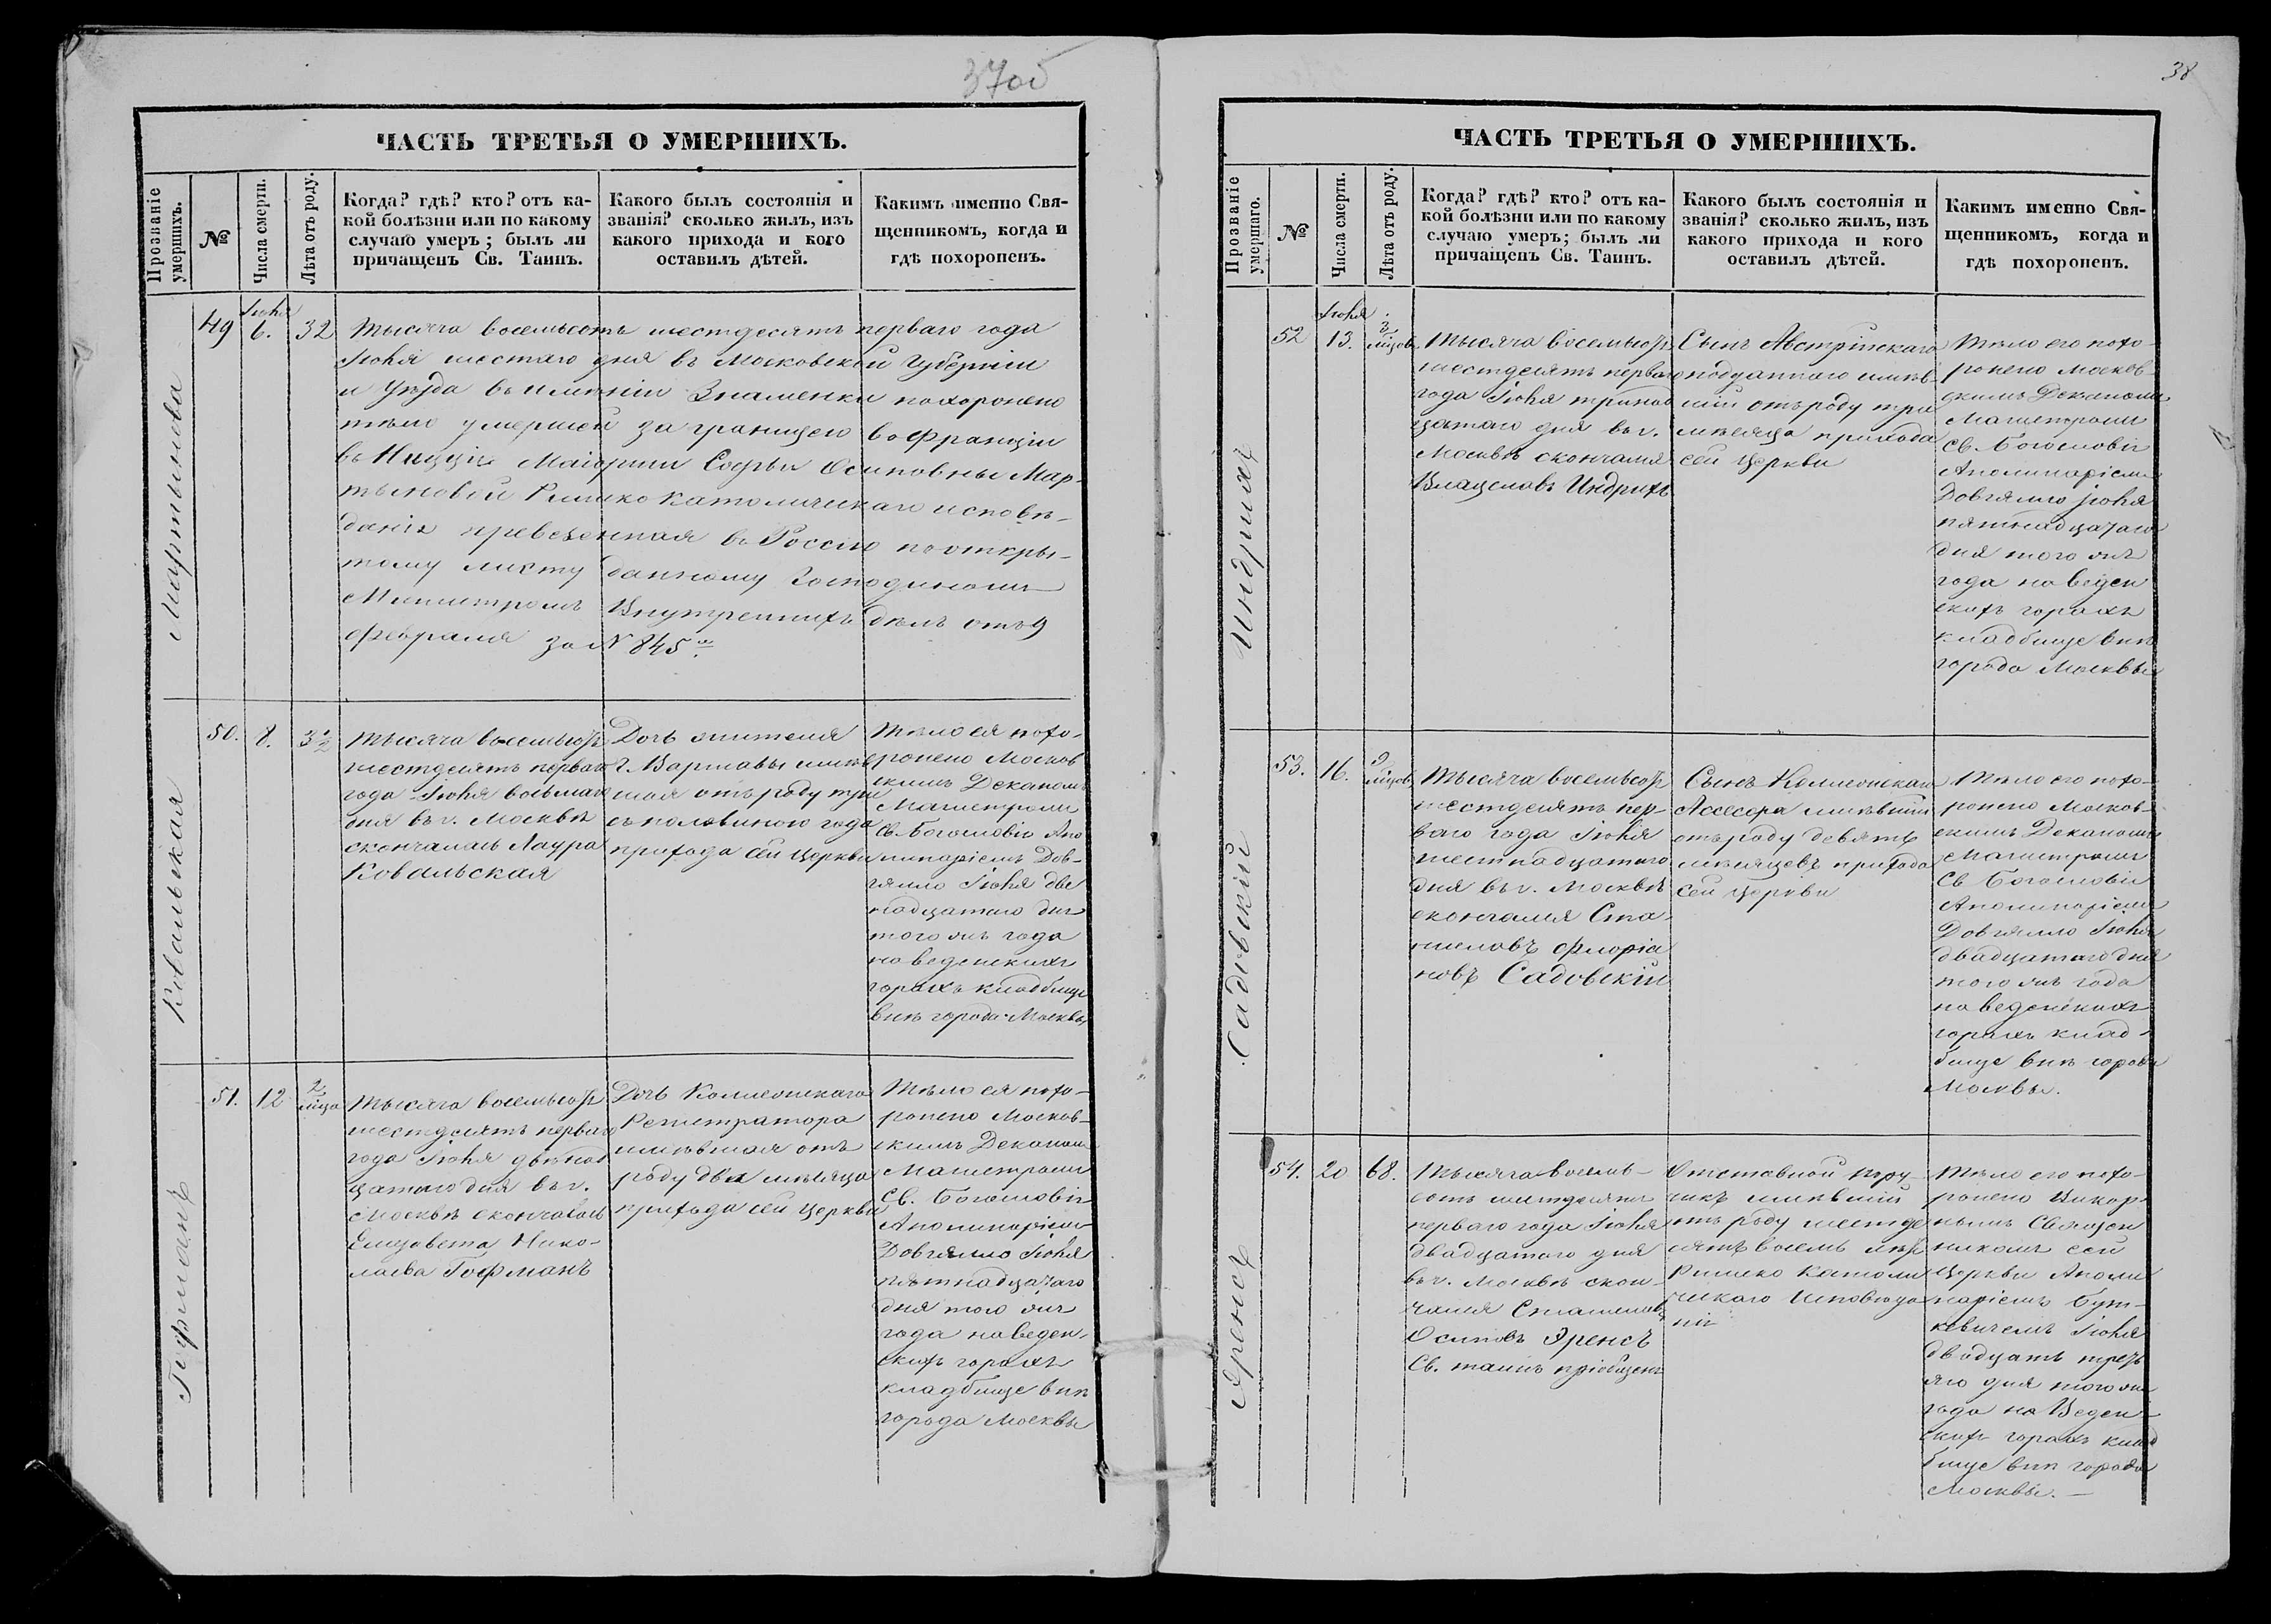 37об
ЧАСТЬ ТРЕТЬЯ О УМЕРШИХЪ.
Прозваніе умершихъ.
№
Числа смерти.
Лѣта отъ роду.
Когда? гдѣ? кто? отъ ка-
кой болѣзни или по какому
случаю умеръ; былъ ли
причащенъ Св. Таинъ.
Какого былъ состоянія и
званія? сколько жилъ, изъ
какого прихода и кого
оставилъ дѣтей.
Какимъ именно Свя-
щенникомъ, когда и
гдѣ похороненъ.
Мартынова
49
Іюня
6.
32
Тысяча восемьсотъ шестдесятъ перваго года
Іюня шестаго дня въ Московской Губерніи
и Уѣзда въ имѣніи Знаменки похоронено
тѣло умершей за границею во Франціи
въ Ниццѣ Маіорши Софьи Осиповны Мар-
тыновой Римско Католическаго исповѣ-
данія превезенная въ Россію по откры-
тому листу данному Господиномъ
Министромъ Внутреннихъ Дѣлъ отъ 9
февраля за N 845м.
Ковальская
50.
8.
3½
Тысяча восемьсотъ
шестдесятъ перваго
года Іюня восьмаго
дня въ г. Москвѣ
скончалась Лаура
Ковальская
Дочь жителя
г. Варшавы имѣв
шая отъ роду три
съ половиною года
прихода сей Церкви
Тѣло ея похо-
ронено Москов
скимъ Деканомъ
Магистромъ
Св. Богословіи Апо
линаріемъ Дов-
гялло Іюня две
надцатаго дня
того жъ года
на веденскихъ
горахъ кладбище
внѣ города Москвы
Гофманъ
51.
12
2
мѣца
Тысяча восемьсотъ
шестдесятъ перваго
года Іюня двѣнад
цатаго дня въ г.
Москвѣ скончалась
Елизовета Нико-
лаева Гофманъ
Дочь Коллежскаго
Регистратора
имѣвшая отъ
роду два мѣсяца
прихода сей Церкви
Тѣло ея похо-
ронено Москов-
скимъ Деканомъ
Магистромъ
Св. Богословіи
Аполинаріемъ
Довгялло Іюня
пятнадцатаго
дня того жъ
года на веден-
скихъ горахъ
кладбище внѣ
города Москвы
38
ЧАСТЬ ТРЕТЬЯ О УМЕРШИХЪ.
Прозваніе умершаго.
№
Числа смерти.
Лѣта отъ роду.
Когда? гдѣ? кто? отъ ка-
кой болѣзни или по какому
случаю умеръ; былъ ли
причащенъ Св. Таинъ.
Какого былъ состоянія и
званія? сколько жилъ, изъ
какого прихода и кого
оставилъ дѣтей.
Какимъ именно Свя-
щенникомъ, когда и
гдѣ похороненъ.
Индрихъ
52
Іюня
13.
3
мѣцов.
Тысяча восемьсотъ
шестдесятъ перваго
года Іюня тринад
цатаго дня въ г.
Москвѣ скончался
Влацславъ Индрихъ
Сынъ Австрійскаго
подданнаго имѣв-
шій отъ роду три
мѣсяца прихода
сей Церкви
Тѣло его похо-
ронено Москов-
скимъ Деканомъ
Магистромъ
Св. Богословіи
Аполинаріемъ
Довгялло Іюня
пятнадцатаго
дня того жъ
года на веден
скихъ горахъ
кладбище внѣ
города Москвы
Садовскій
53.
16.
9
мѣцов
Тысяча восемьсотъ
шестдесятъ пер-
ваго года Іюня
шестнадцатаго
дня въ г. Москвѣ
скончался Ста-
ниславъ Флоріа
новъ Садовскій
Сынъ Коллежскаго
Ассесора имѣвшій
отъ роду девять
мѣсяцевъ прихода
сей церкви
Тѣло его похо-
ронено Москов-
скимъ Деканомъ
Магистромъ
Св Богословіи
Аполинаріемъ
Довгялло Іюня
двадцатаго дня
того жъ года
на веденскихъ
горахъ клад-
бище внѣ города
Москвы.
Яренсъ
54.
20
68.
Тысяча восемь-
сотъ шестдесятъ
перваго года Іюня
двадцатаго дня
въ г. Москвѣ скон-
чался Станиславъ
Осиповъ Яренсъ
Св. таинъ пріобщенъ
Отставной Пору-
чикъ имѣвшій
отъ роду шестде
сятъ восемь лѣтъ
Римско Католи
ческаго Исповѣда
нія
Тѣло его похо-
ронено Викар-
нымъ Священ
никомъ сей
Церкви Аполи
наріемъ Бут-
кевичемъ Іюня
двадцать треть
яго дня того жъ
года на Веден-
скихъ горахъ клад
бище внѣ города
Москвы.—